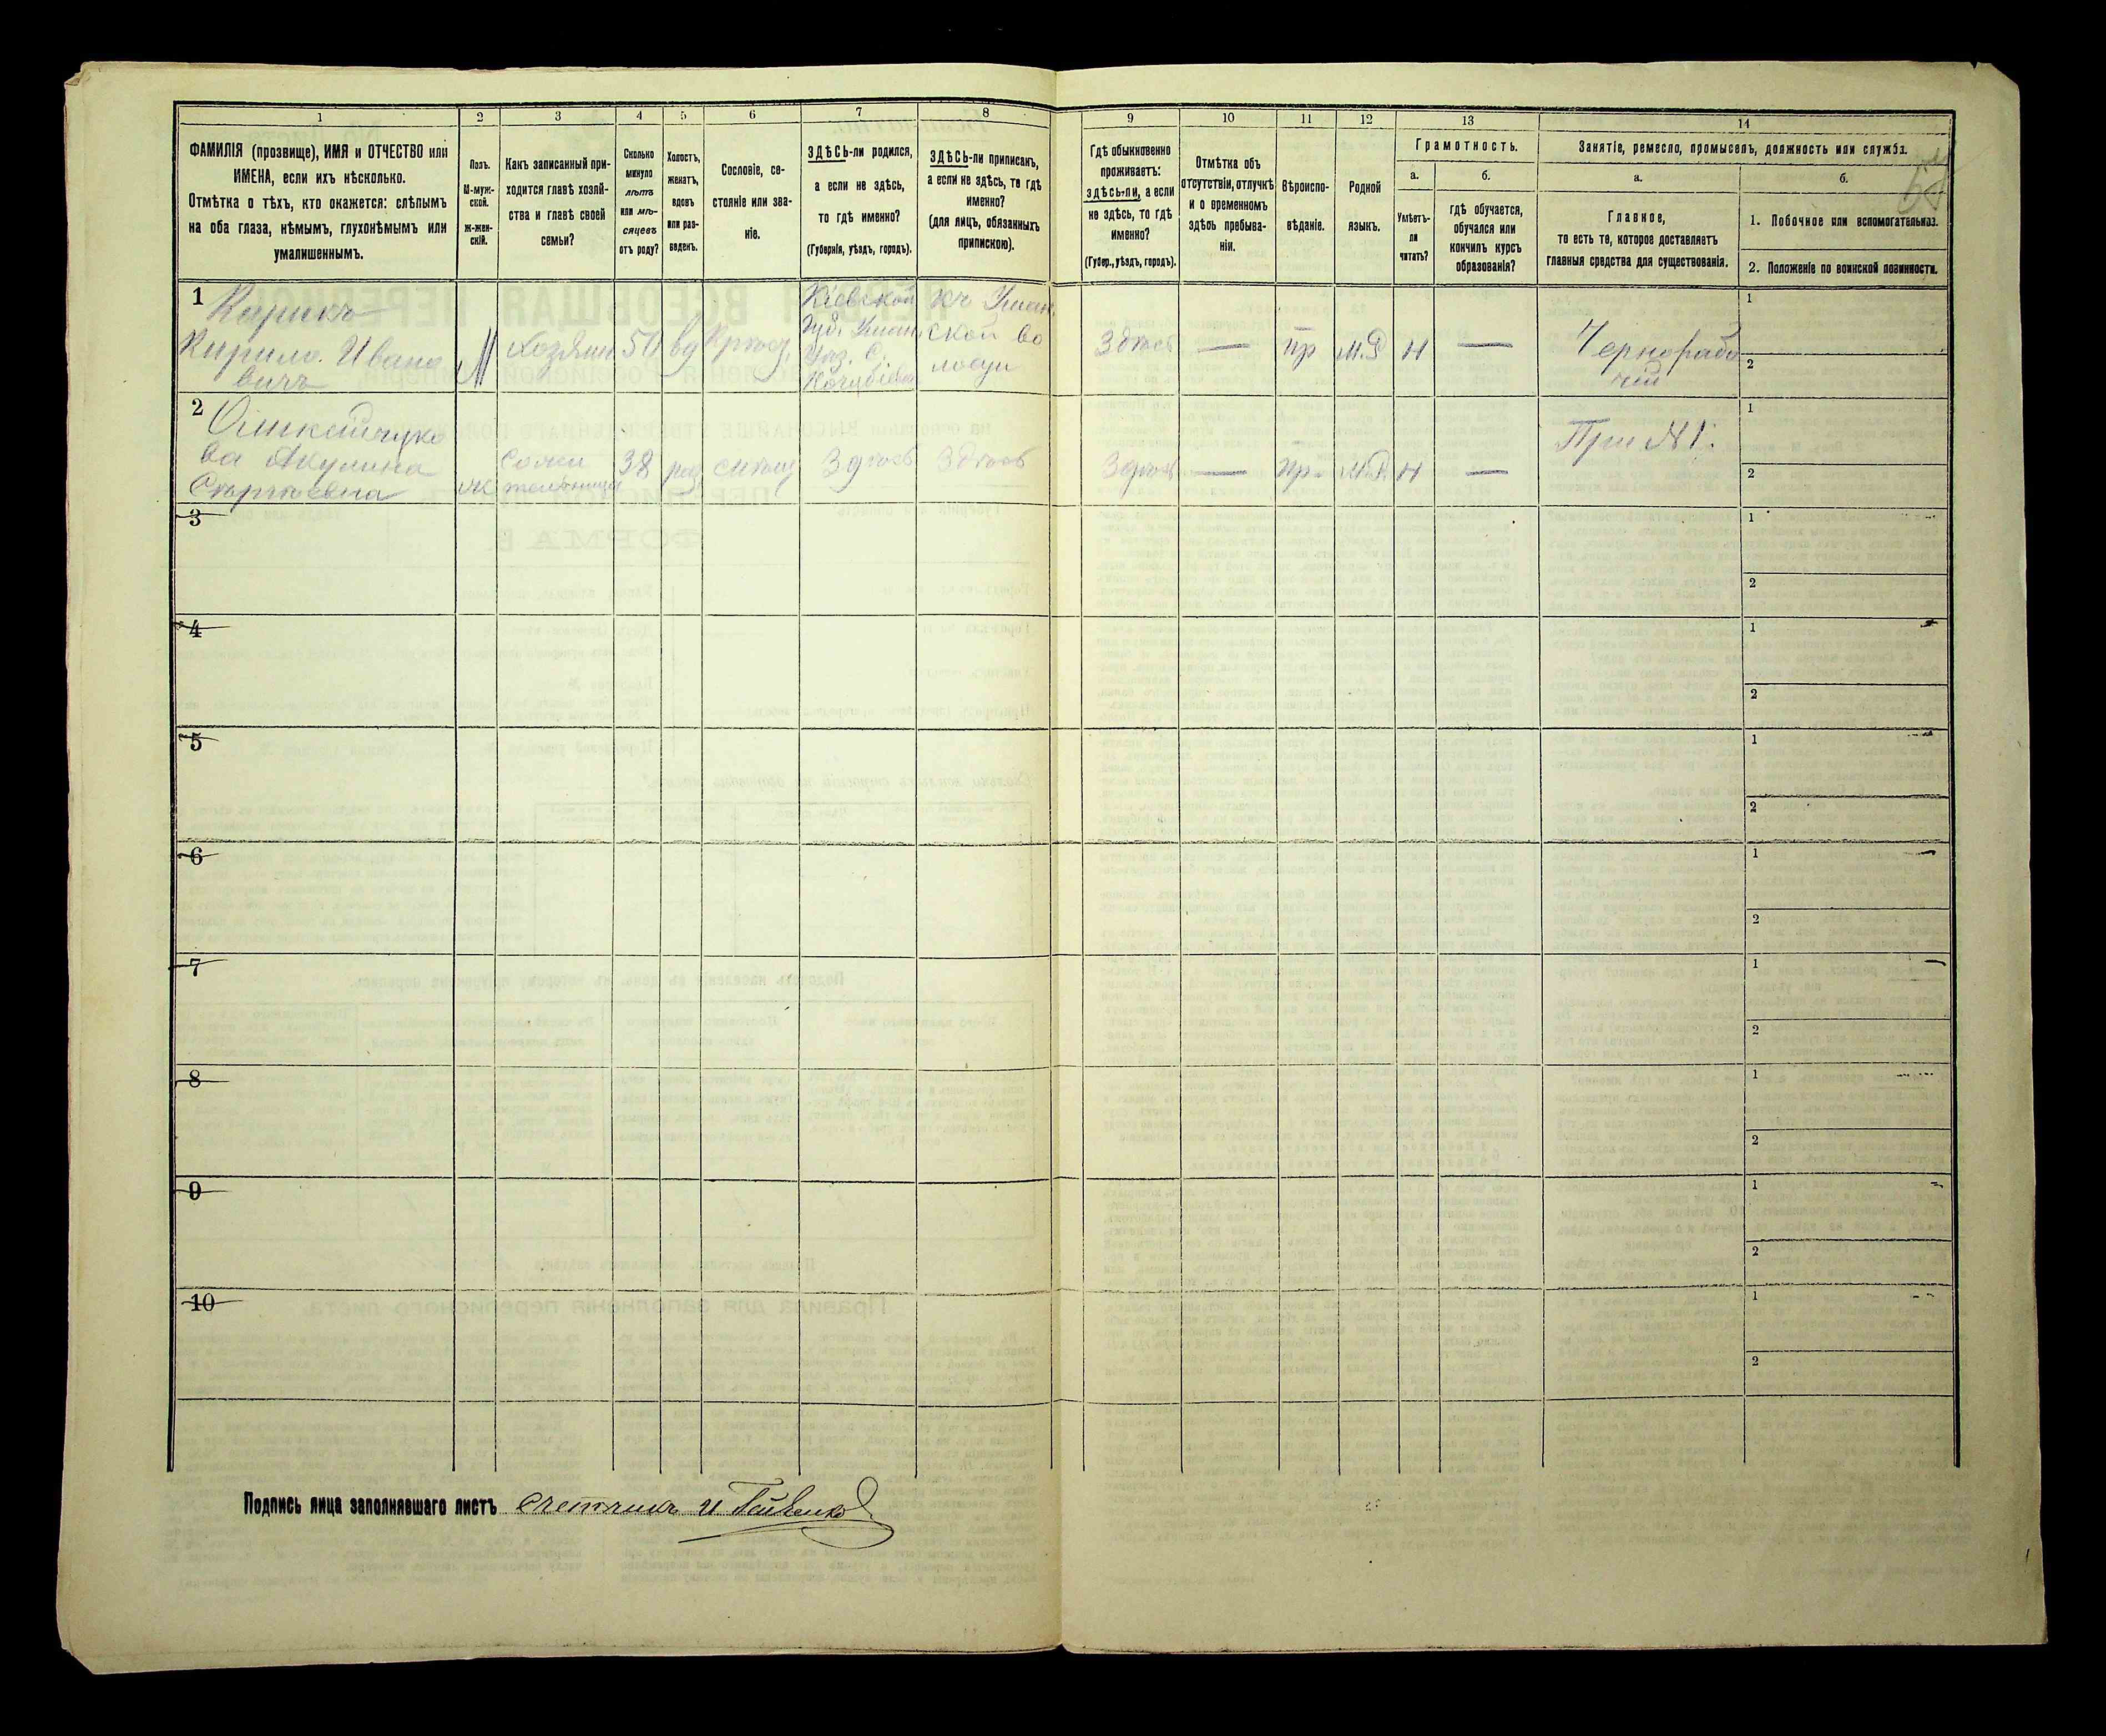 1
2
3
4
5
6
7
8
9
10
11
12
13
14
ФАМИЛІЯ (прозвище), ИМЯ и ОТЧЕСТВО или
ИМЕНА, если ихъ нѣсколько.
Отмѣтка о тѣхъ, кто окажется: слѣпымъ
на оба глаза, нѣмымъ, глухонѣмымъ или
умалишеннымъ.
Полъ.
М-муж-
ской.
Ж-жен-
скій.
Какъ записанный при-
ходится главѣ хозяй-
ства и главѣ своей
семьи?
Сколько
минуло
лѣтъ
или мѣ-
сяцевъ
отъ роду?
Холостъ,
женатъ,
вдовъ
или раз-
веденъ.
Сословіе, со-
стояніе или зва-
ніе.
ЗДѢСЬ-ли родился,
а если не здѣсь,
то гдѣ именно?
(Губернія, уѣздъ, городъ).
ЗДѢСЬ-ли приписанъ,
а если не здѣсь, то гдѣ
именно?
(для лицъ, обязанныхъ
припискою).
Гдѣ обыкновенно
проживаетъ:
здѣсь-ли, а если
не здѣсь, то гдѣ
именно?
(Губер., уѣздъ, городъ).
Отмѣтка объ
отсутствіи, отлучкѣ
и о временномъ
здѣсь пребыва-
ніи.
Вѣроиспо-
вѣданіе.
Родной
языкъ.
Грамотность.
а.
Умѣетъ-
ли
читать?
б.
гдѣ обучается,
обучался или
кончилъ курсъ
образованія?
Занятіе, ремесло, промыселъ, должность или служба.
а.
Главное,
то есть то, которое доставляетъ
главныя средства для существованія.
б.
1. Побочное или вспомогательное.
2. Положеніе по воинской повинности.
1
Кирило Ивано
вичъ
М
хозяин
50
вд
Кіевской
губ. Уман.
къ Уман
ской во
лости
Здѣсь
—
пр
М.Р
н
—
Чернорабо
чій
1
2
2
ва Акулина
Сергѣевна
ж
сожи
тельница
38
Здѣсь
Здѣсь
Здѣсь
—
пр.
М.Р.
н
—
При №1.
1
2
3
1
2
4
1
2
5
1
2
6
1
2
7
1
2
8
1
2
9
1
2
10
1
2
Подпись лица заполнявшаго листъ Счетчикъ И